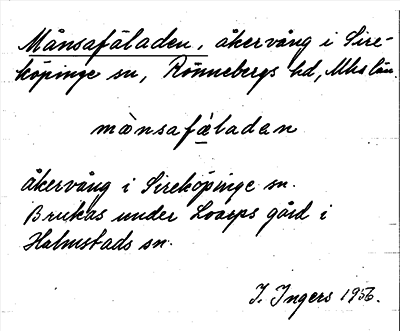 Månsafäladen, åkervång i Sire-
köpinge sn, Rönnebergs hd, Mhs län.
mànsafä̀ladan
åkervång i Sireköpinge sn.
Brukas under Loarps gård i
Halmstads sn.
I. Ingers 1956.